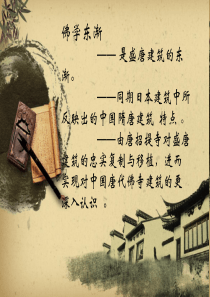 佛学东渐
——是盛唐建筑的东
渐。
——同期日本建筑中所
反映出的中国隋唐建筑 特点。
——由唐招提寺对盛唐
建筑的忠实复制与移植，进而
实现对中国唐代佛寺建筑的更
深入认识 。